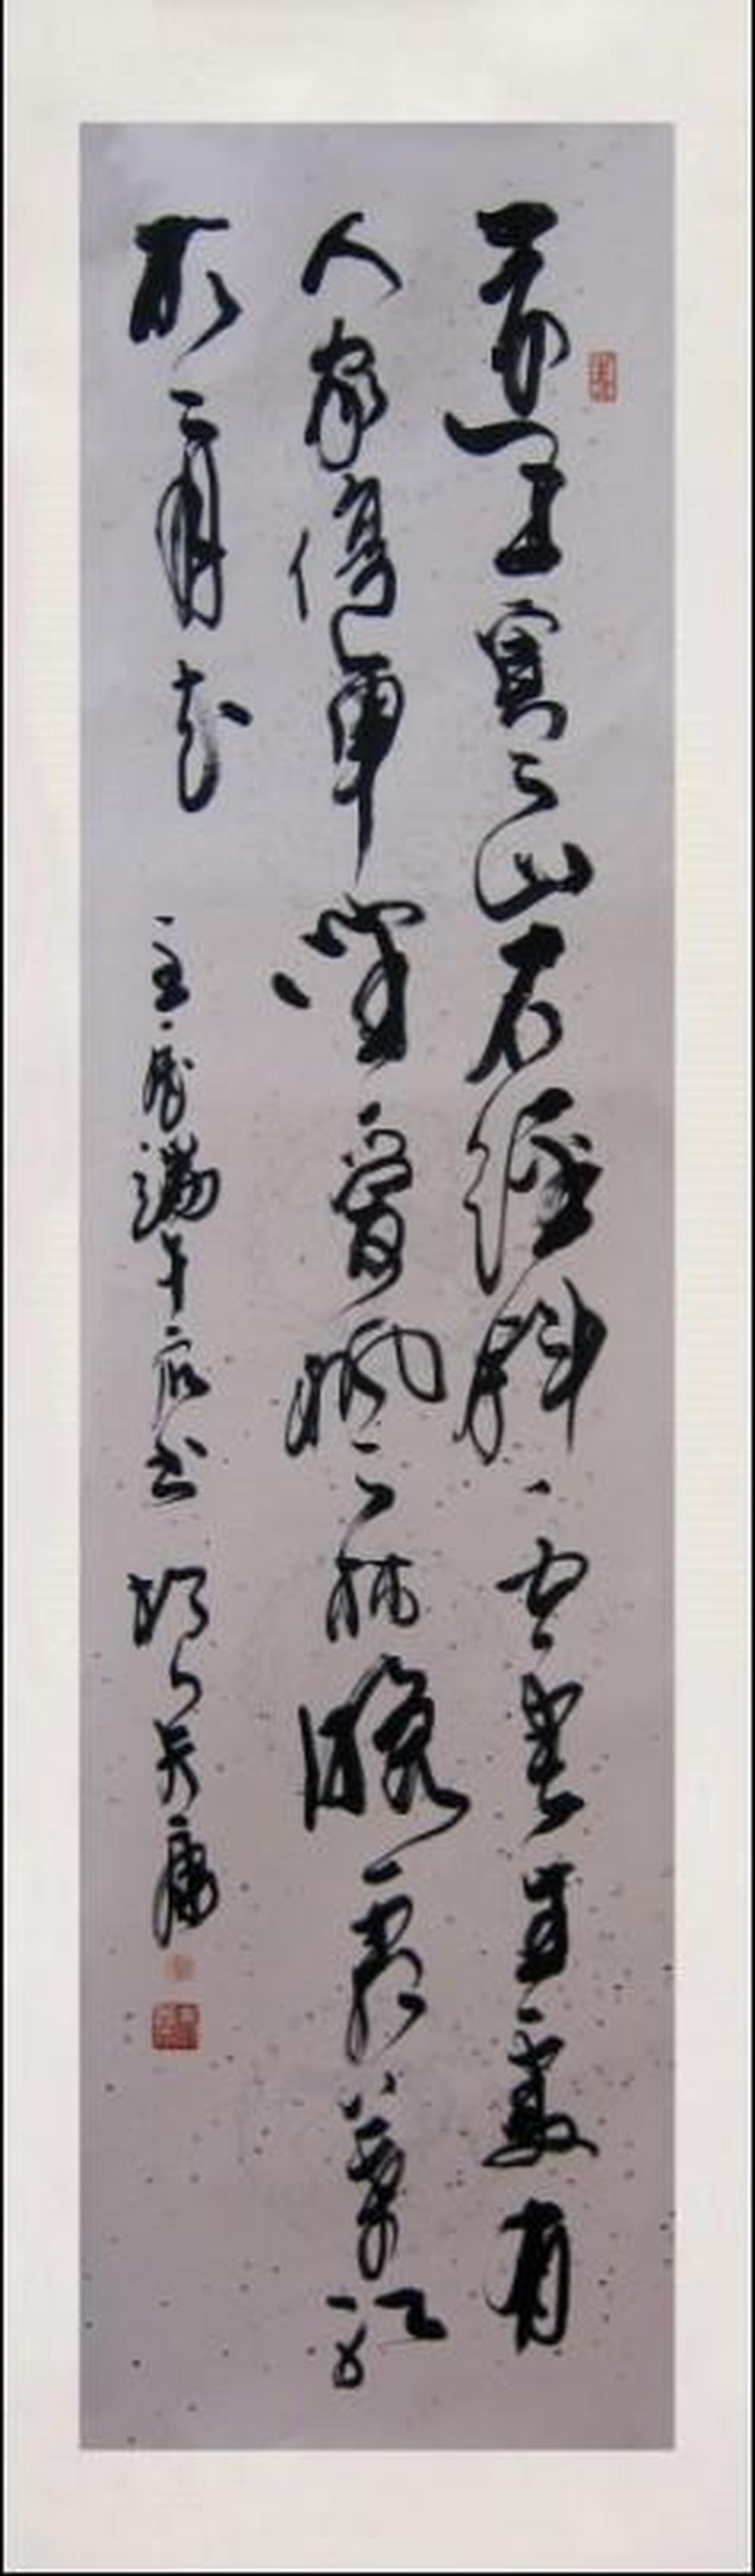 遠上寒山石徑斜白雲生處有
人家停車坐愛楓林晚霜葉紅
於二月花 壬辰端午后书